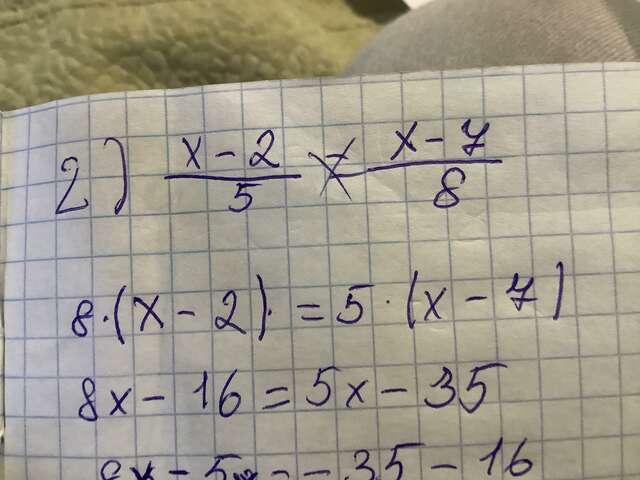 2) x - 2 / 5 = x - 7 / 8
8 · (x - 2) · = 5 · (x - 7)
8x - 16 = 5x - 35
8x - 5x = - 35 - 16